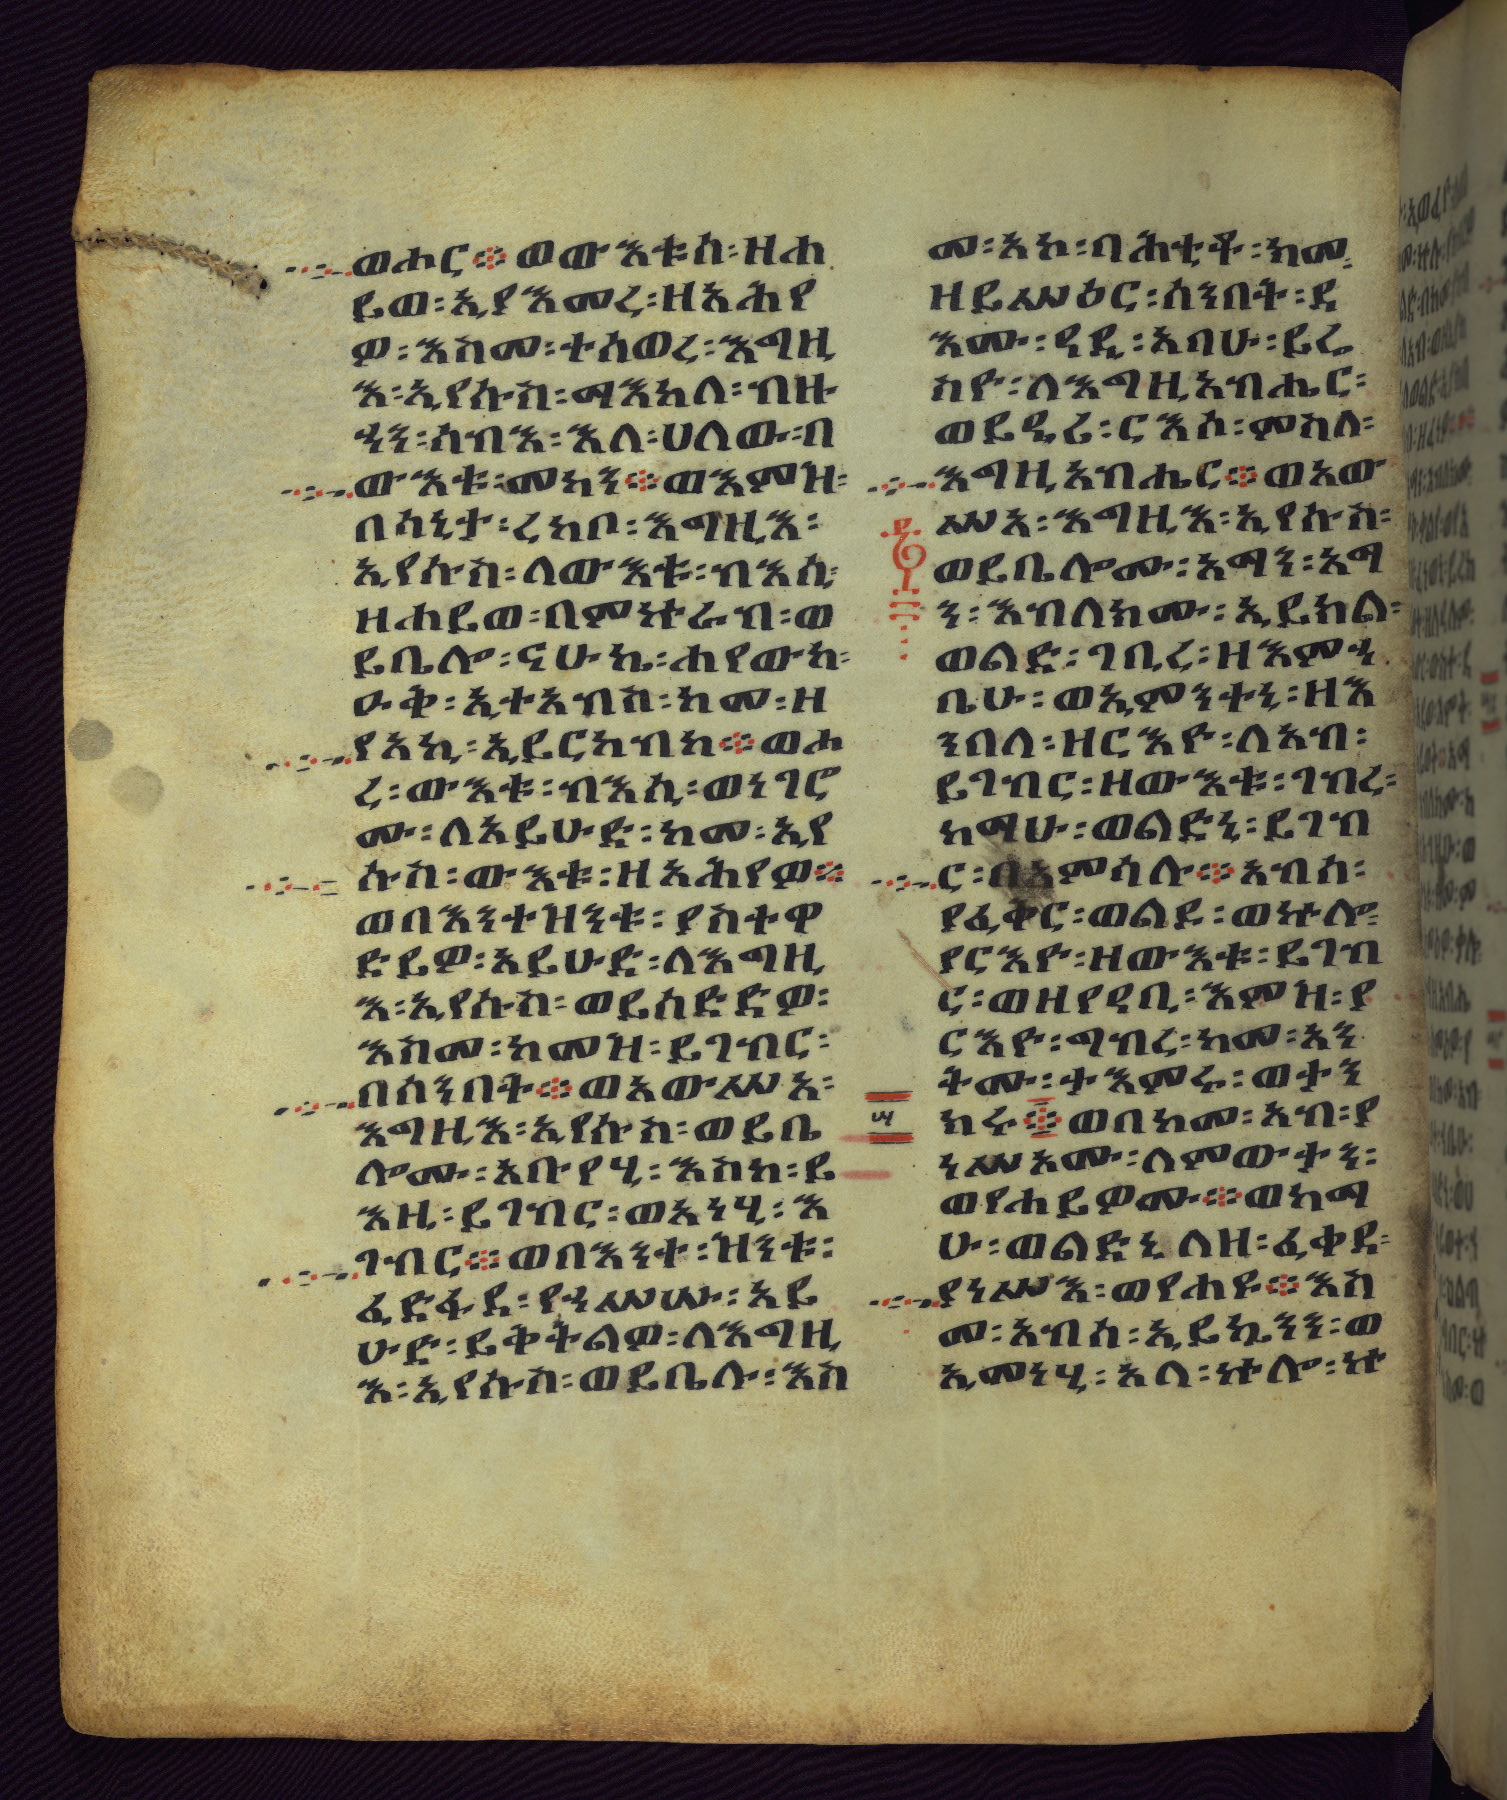 ወሑር፨ወውእቱሰ፡ዘሐ
ይወ፡ኢያእመረ፡ዘአሕየ
ዎ፡እስመ፡ተሰወረ፡እግዚ
እ፡ኢየሱስ፡ማእከለ፡ብዙ
ኃን፡ሰብእ፡እለ፡ሀለው፡በ
ውእቱ፡መካን፨ወእምዝ፡
በሳኒታ፡ረከቦ፡እግዚእ፡
ኢየሱስ፡ለውእቱ፡ብእሲ፡
ዘሐይወ፡በምኵራብ፡ወ
ይቤሎ፡ናሁኬ፡ሐየውከ፡
ዑቅ፡ኢተአብስ፡ከመ፡ዘ
የአኪ፡ኢይርከብከ፨ወሖ
ረ፡ውእቱ፡ብእሲ፡ወነገሮ
ሙ፡ለአይሁድ፡ከመ፡ኢየ
ሱስ፡ውእቱ፡ዘአሕየዎ፨
ወበእንተዝንቱ፡ያስተዋ
ድይዎ፡አይሁድ፡ለእግዚ
እ፡ኢየሱስ፡ወይሰድድዎ፡
እስመ፡ከመዝ፡ይገብር፡
በሰንበት፨ወአውሥአ፡
እግዚእ፡ኢየሱስ፡ወይቤ
ሎሙ፡አቡየሂ፡እስከ፡ይ
እዜ፡ይገብር፡ወአነሂ፡እ
ገብር፨ወበእንተ፡ዝንቱ፡
ፈድፋደ፡የኃሥሡ፡አይ
ሁድ፡ይቅትልዎ፡ለእግዚ
እ፡ኢየሱስ፡ወይቤሉ፡እስ
መ፡አኮ፡ባሕቲቶ፡ከመ፡
ዘይሥዕር፡ሰንበት፡ዳ
እሙ፡ዲዲ፡አባሁ፡ይሬ
ስዮ፡ለእግዚአብሔር፡
ወይዔሪ፡ርእሶ፡ምስለ፡
እግዚአብሔር፨ወአው
ሥአ፡እግዚእ፡ኢየሱስ፡
ወይቤሎሙ፡አማን፡አማ
ን፡እብለክሙ፡ኢይክል፡
ወልድ፡ገቢረ፡ዘእምኀ
ቤሁ፡ወኢምንተኒ፡ዘእ
ንበለ፡ዘርእዮ፡ለአብ፡
ይገብር፡ዘውእቱ፡ገብረ፡
ከማሁ፡ወልድኒ፡ይገብ
ር፡በአምሳሉ፨አብሰ፡
ያፈቅር፡ወልዶ፡ወኵሎ፡
ያርእዮ፡ዘውእቱ፡ይገብ
ር፡ወዘየዓቢ፡እምዝ፡ያ
ርእዮ፡ግብረ፡ከመ፡አን
ትሙ፡ታእምሩ፡ወታን
ክሩ፨ወበከመ፡አብ፡ያ
ነሥኦሙ፡ለምውታን፡
ወየሐይዎሙ፨ወከማ
ሁ፡ወልድኒ ለዘ፡ፈቀደ፡
ያነሥእ፡ወየሐዩ፨እስ
መ፡አብሰ፡ኢይኴንን፡ወ
ኢመነሂ፡አላ፡ኵሎ፡ኵ